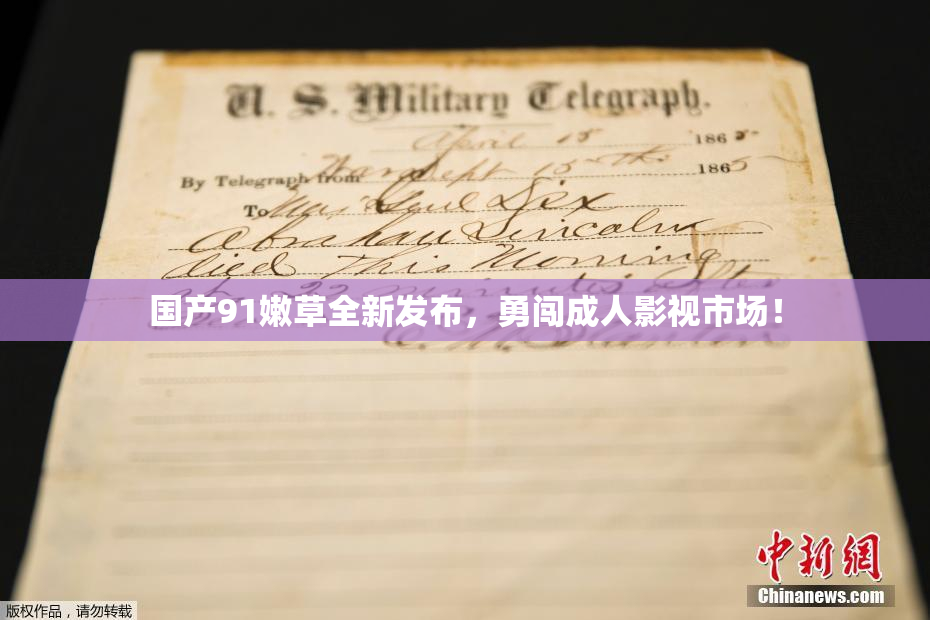 U. S. Military Telegraph.
April 15 1865
By Telegraph from War Dept 15th 1865
To Maj Genl Dix
Abraham Lincoln
died This Morning
at 22 minutes after
国产91嫩草全新发布，勇闯成人影视市场！
E. M. Stanton
中新网
Chinanews.com
版权作品，请勿转载